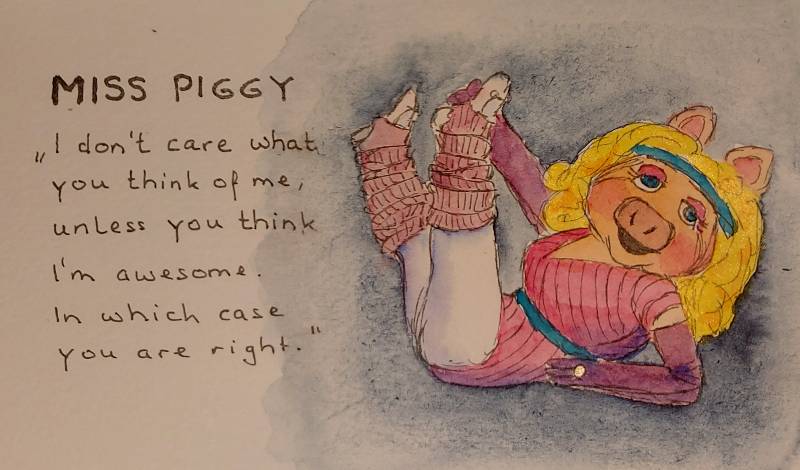 MISS PIGGY
„I don't care what
you think of me,
unless you think
I'm awesome.
In which case
you are right."